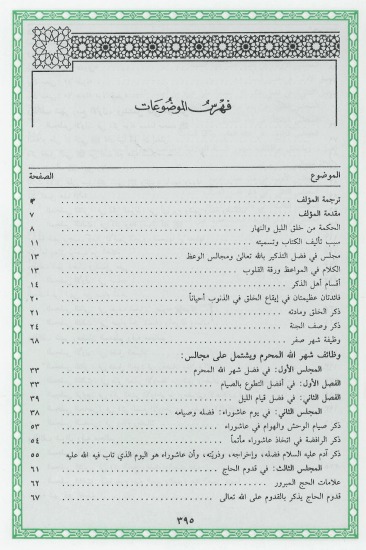 فهرس الموضوعات
الموضوع الصفحة
ترجمة المؤلف ٣
مقدمة المؤلف ٧
الحكمة من خلق الليل والنهار ٨
سبب تأليف الكتاب وتسميته ١١
مجلس في فضل التذكير بالله تعالىٰ ومجالس الوعظ ١٣
الكلام في المواعظ ورقة القلوب ١٣
أقسام أهل الذكر ١٤
فائدتان عظيمتان في إيقاع الخلق في الذنوب أحياناً ٢٠
ذكر الخلق ومادته ٢١
ذكر وصف الجنة ٢٤
وظيفة شهر صفر ٦٨
وظائف شهر الله المحرم ويشتمل على مجالس:
المجلس الأول: في فضل شهر الله المحرم ٣٣
الفصل الأول: في أفضل التطوع بالصيام ٣٣
الفصل الثاني: في فضل قيام الليل ٣٩
المجلس الثاني: في يوم عاشوراء: فضله وصيامه ٣٨
ذكر صيام الوحش والهوام في عاشوراء ٥٣
ذكر الرافضة في اتخاذ عاشوراء مأتماً ٥٤
ذكر آدم عليه السلام فضله، وإخراجه، وذريته، وأن عاشوراء هو اليوم الذي تاب فيه الله عليه ٥٥
المجلس الثالث: في قدوم الحاج ٦١
علامات الحج المبرور ٦٢
قدوم الحاج يذكر بالقدوم على الله تعالى ٦٧
٣٩٥